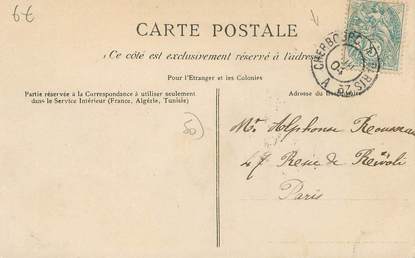 6€
CARTE POSTALE
Ce côté est exclusivement réservé à l'adresse
Pour l'Etranger et les Colonies
Partie réservée à la Correspondance à utiliser seulement
dans le Service Intérieur (France, Algérie, Tunisie)
Adresse du
CHERBOURG A PARIS
04
50
Mr Alphonse Rousseau
47 Rue de Rivoli
Paris